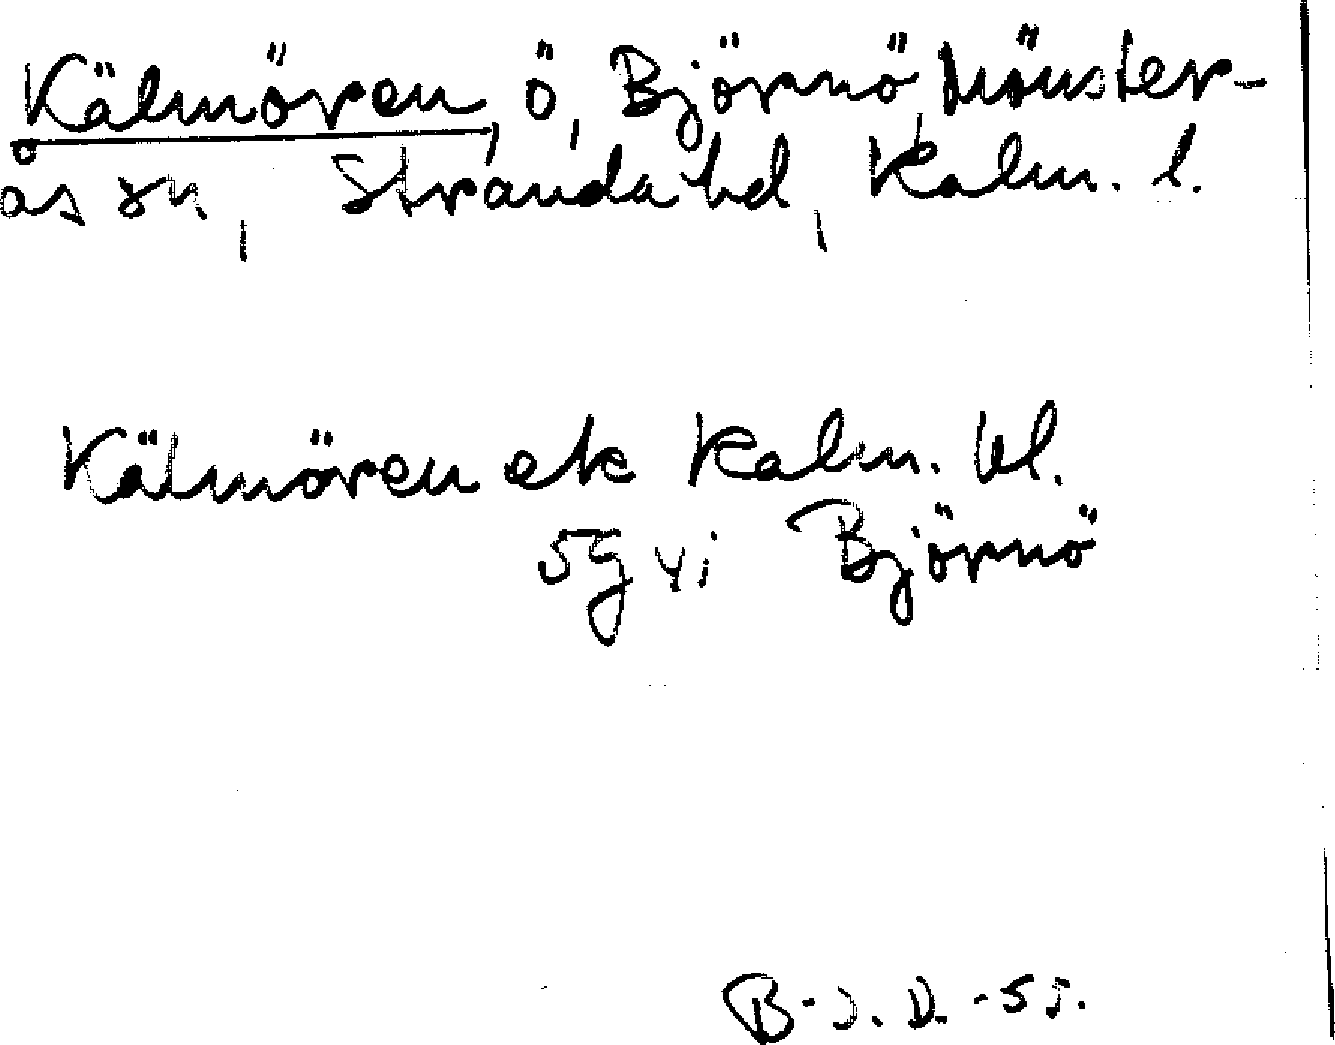 Kälmören, ö, Björnö, Mönster-
ås sn, Stranda hd, Kalm. l.
Kälmören ek Kalm. bl.
5g yi Björnö
B-J. D. -55.